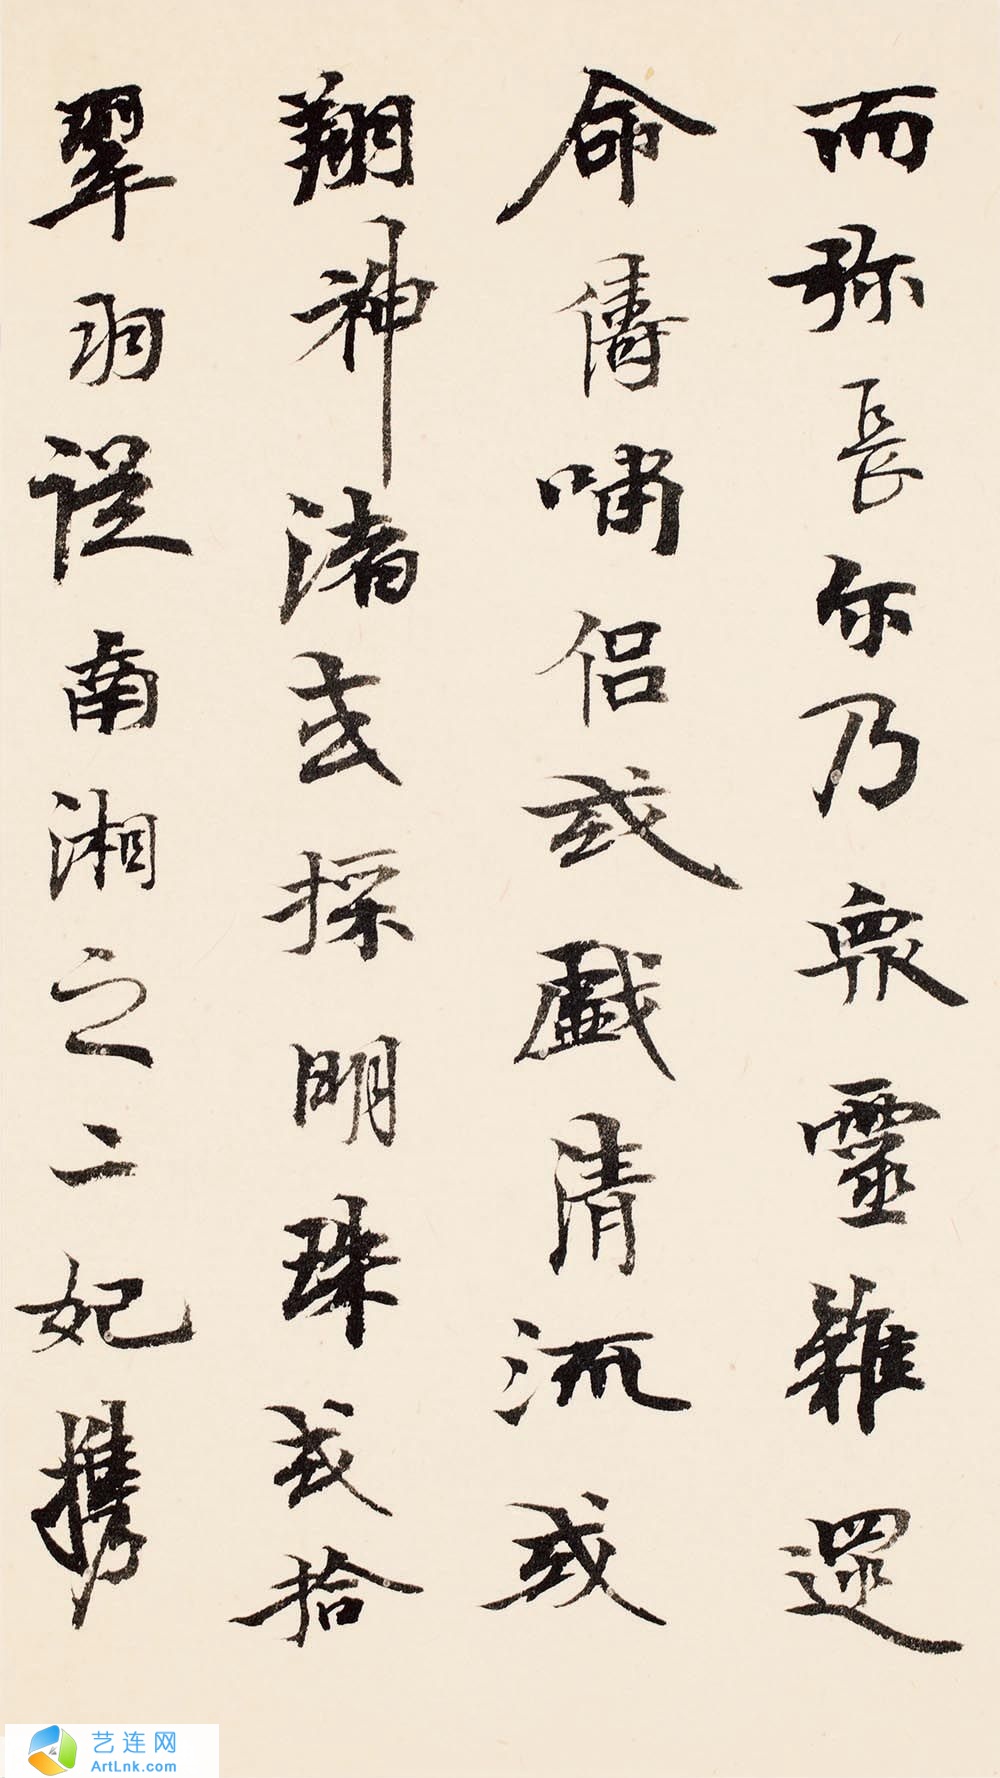 而弥長尓乃衆靈雜遝
命儔嘯侣或戲清流或
翔神渚或採明珠或拾
翠羽從南湘之二妃攜
艺连网
ArtLnk.com